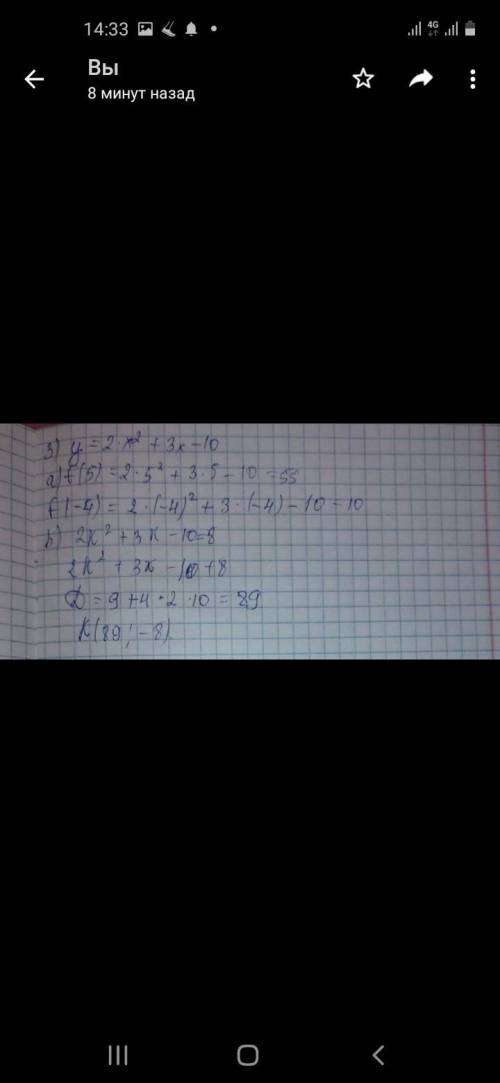 14:33
4G
Вы
8 минут назад
3) y = 2·x² + 3x - 10
a) f(5) = 2·5² + 3·5 - 10 = 55
f(-4) = 2·(-4)² + 3·(-4) - 10 = 10
b) 2x² + 3x - 10 = 8
2x² + 3x - 10 + 8
D = 9 + 4·2·10 = 89
K(89; -8)